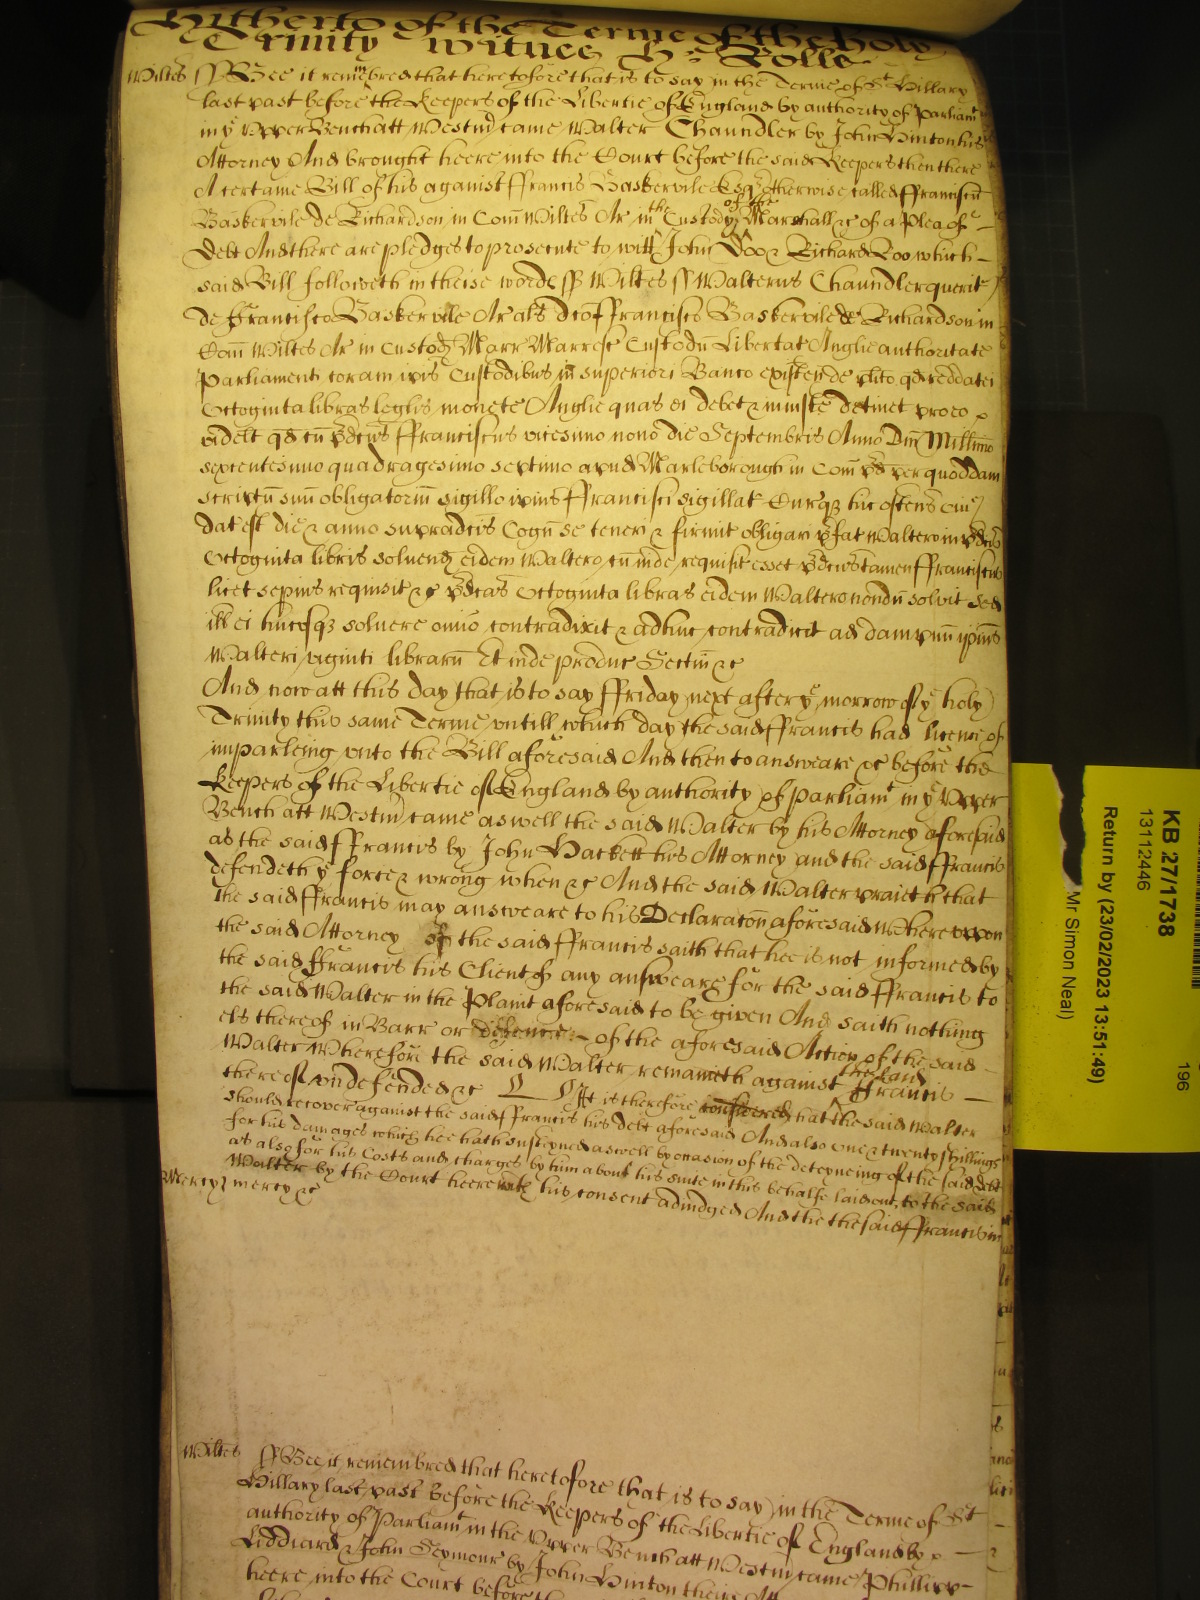 Hitherto of the Terme of the holy
Trinity witnes H: Rolle
Wiltes ss Bee it remembred that heretofore that is to say in the Terme of St Hillary
last past before the Keepers of the Libertie of England by authority of Parliamt
in ye Upper Bench att Westm came Walter Chaundler by John Hinton his
Attorney And brought heere into the Court before the said Keepers then there
A certaine Bill of his against ffrancis Baskervile Esqr otherwise called ffranciscu
Baskervile de Richardson in Com Wiltes Ar in the Custody of the Marshall &c of a Plea of
Debt And there are pledges to prosecute to witt John Doo & Richard Roo which
said Bill followeth in theise words ss Wiltes ss Walterus Chaundler querit
de Francisco Baskervile Ar als dco ffrancisco Baskervile de Richardson in
Com Wiltes Ar in Custod Marr Marresc Custodu Libertat Anglie authoritate
Parliamenti coram ipis Custodibus in superiori Banco existen de plito qd reddat ei
Octoginta libras leglis monete Anglie quas ei debet & iniuste detinet p eo
videlt qd cu pdcus ffranciscus vicesimo nono die Septembris Anno Dni Millimo
sexcentesimo quadragesimo septimo apud Marleborough in Com pd per quoddam
scriptu suu obligatoriu sigillo ipius ffrancisci sigillat Curq hic ostens cui
dat est die & anno supradcis Cogn se teneri & firmit obligari pfat Waltero in pdcis
Octoginta libris solvend eidem Waltero cu inde requisit esset pdcus tamen ffranciscus
licet sepius requisit &c pdcas Octoginta libras eidem Waltero nondu solvit Sed
ill ei hucusq solvere omio contradixit & adhuc contradicit ad dampnu ipius
Walteri viginti libraru Et inde produc Sectm &c
And now att this day that is to say ffriday next after ye morrow of ye holy
Trinity this same Terme untill which day the said ffrancis had licence of
imparleing unto the Bill aforesaid And then to answeare &c before the
Keepers of the Libertie of England by authority of Parliamt in ye Upper
Bench att Westm came aswell the said Walter by his Attorney aforesaid
as the said ffrancis by John Hackett his Attorney and the said ffrancis
defendeth ye force & wrong when &c And the said Walter praieth that
the said ffrancis may answeare to his Declaracon aforesaid Whereupon
the said Attorney of the said ffrancis saith that hee is not informed by
the said ffrancis his Client of any answeare for the said ffrancis to
the said Walter in the Plaint aforesaid to be given And saith nothing
els thereof in Barr or defence of the aforesaid Action of the said
Walter Wherefore the said Walter remaineth against the said ffrancis
thereof undefended &c It is therefore considered that the said Walter
should recover against the said ffrancis his debt aforesaid And also one & twenty shillings
for his damages which hee hath susteyned aswell by occasion of the deteyneing of the said debt
as also for his Costs and charges by him about his suite in this behalfe laid out, to the said
Walter by the Court heere with his consent adiudged And the the said ffrancis in
Mercy mercy &c
Wiltes ss Bee it remembred that heretofore that is to say in the Terme of St
Hillary last past before the Keepers of the Libertie of England by
authority of Parliamt in the Upper Bench att Westm came Phillipp
Liddiard & John Seymour by John Hinton their Att
heere into the Court before
KB 27/1738
13112446
196
Return by (23/02/2023 13:51:49)
Mr Simon Neal)